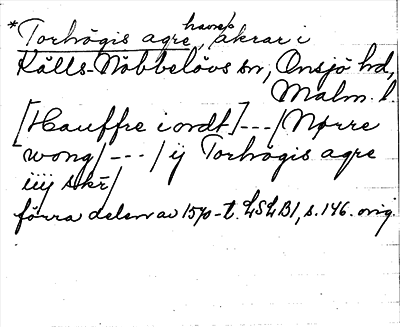 *Torhögis agre, åkrar i
Källs-Nöbbelövs sn, Onsjö hd,
Malm. l.
[Hauffre iordt]---/Nørre
wong/---/ij Torhögis agre
iiij skr/
förra delen av 1570-t. LSLB1, s. 146. orig.